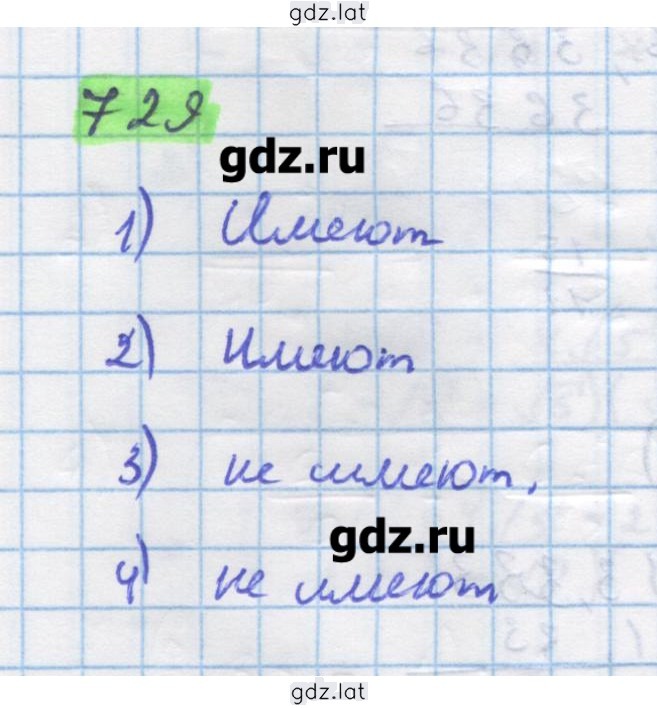 gdz.lat
729
gdz.ru
1) Имеют
2) Имеют
3) не имеют.
gdz.ru
4) не имеют
gdz.lat